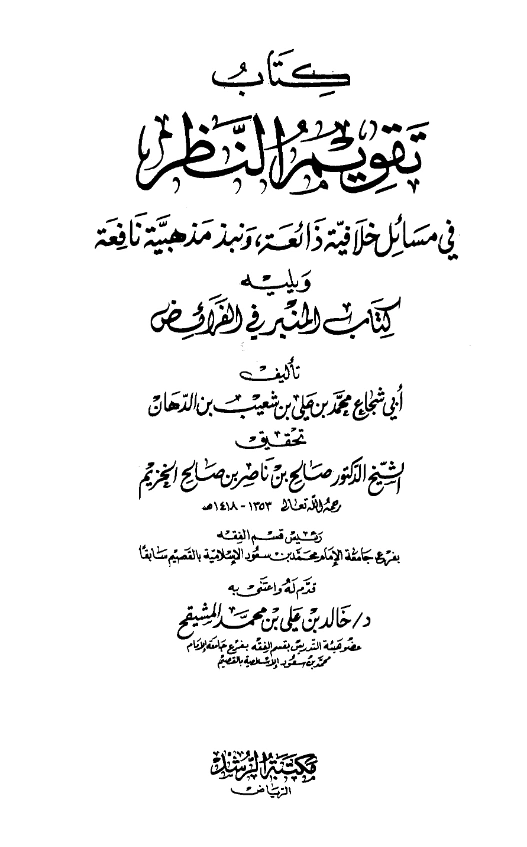 كتاب
تقويم النظر
في مسائل خلافية ذائعة، ونبذ مذهبية نافعة
ويليه
كتاب المنبر في الفرائض
تأليف
أبي شجاع محمد بن علي بن شعيب بن الدهان
تحقيق
الشيخ الدكتور صالح بن ناصر بن صالح الخزيم
رحمه الله تعالى ١٣٥٣ - ١٤١٨هـ
رئيس قسم الفقه
بفرع جامعة الإمام محمد بن سعود الإسلامية بالقصيم سابقا
قدم له واعتنى به
د/ خالد بن علي بن محمد المشيقح
عضو هيئة التدريس بقسم الفقه بفرع جامعة الإمام
محمد بن سعود الإسلامية بالقصيم
مكتبة الرشد
الرياض